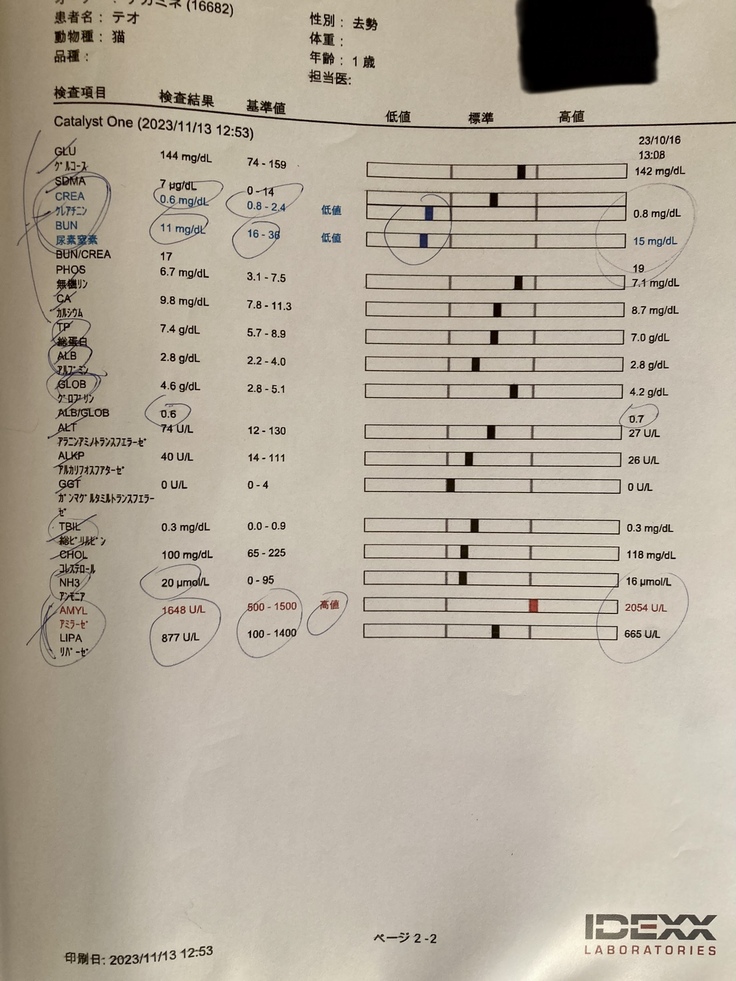 ミネ (16682)
患者名: テオ
性別: 去勢
動物種: 猫
体重:
品種:
年齢: 1 歳
担当医:
検査項目 検査結果 基準値 低値 標準 高値
Catalyst One (2023/11/13 12:53)
23/10/16
13:08
GLU 144 mg/dL 74 - 159 142 mg/dL
グルコース
SDMA 7 µg/dL 0 - 14
CREA 0.6 mg/dL 0.8 - 2.4 低値 0.8 mg/dL
クレアチニン
BUN 11 mg/dL 16 - 36 低値 15 mg/dL
尿素窒素
BUN/CREA 17 19
PHOS 6.7 mg/dL 3.1 - 7.5 7.1 mg/dL
無機リン
CA 9.8 mg/dL 7.8 - 11.3 8.7 mg/dL
カルシウム
TP 7.4 g/dL 5.7 - 8.9 7.0 g/dL
総蛋白
ALB 2.8 g/dL 2.2 - 4.0 2.8 g/dL
アルブミン
GLOB 4.6 g/dL 2.8 - 5.1 4.2 g/dL
グロブリン
ALB/GLOB 0.6 0.7
ALT 74 U/L 12 - 130 27 U/L
アラニンアミノトランスフェラーゼ
ALKP 40 U/L 14 - 111 26 U/L
アルカリフォスファターゼ
GGT 0 U/L 0 - 4 0 U/L
ガンマグルタミルトランスフェラー
ゼ
TBIL 0.3 mg/dL 0.0 - 0.9 0.3 mg/dL
総ビリルビン
CHOL 100 mg/dL 65 - 225 118 mg/dL
コレステロール
NH3 20 µmol/L 0 - 95 16 µmol/L
アンモニア
AMYL 1648 U/L 500 - 1500 高値 2054 U/L
アミラーゼ
LIPA 877 U/L 100 - 1400 665 U/L
リパーゼ
ページ 2 - 2
印刷日: 2023/11/13 12:53
IDEXX
LABORATORIES